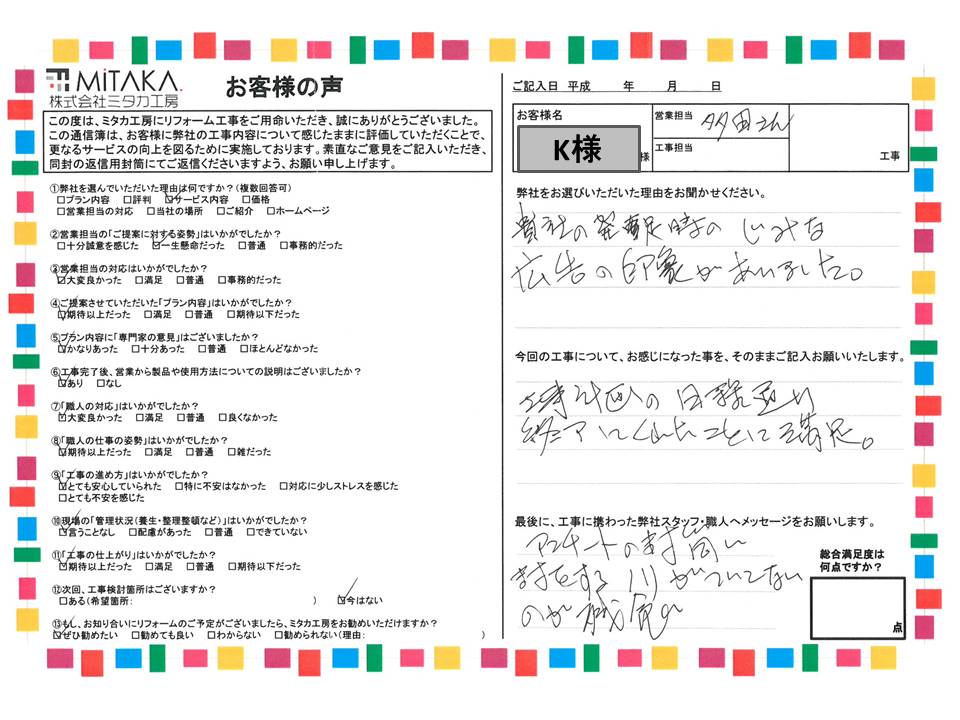 MiTAKA
株式会社ミタカ工房
お客様の声
この度は、ミタカ工房にリフォーム工事をご用命いただき、誠にありがとうございました。
この通信簿は、お客様に弊社の工事内容について感じたままに評価していただくことで、
更なるサービスの向上を図るために実施しております。素直なご意見をご記入いただき、
同封の返信用封筒にてご返信くださいますよう、お願い申し上げます。
①弊社を選んでいただいた理由は何ですか?(複数回答可)
□プラン内容 □評判 ☑サービス内容 □価格
□営業担当の対応 □当社の場所 □ご紹介 □ホームページ
②営業担当の「ご提案に対する姿勢」はいかがでしたか?
□十分誠意を感じた ☑一生懸命だった □普通 □事務的だった
③営業担当の対応はいかがでしたか?
☑大変良かった □満足 □普通 □事務的だった
④ご提案させていただいた「プラン内容」はいかがでしたか?
☑期待以上だった □満足 □普通 □期待以下だった
⑤プラン内容に「専門家の意見」はございましたか?
☑かなりあった □十分あった □普通 □ほとんどなかった
⑥工事完了後、営業から製品や使用方法についての説明はございましたか?
☑あり □なし
⑦「職人の対応」はいかがでしたか?
☑大変良かった □満足 □普通 □良くなかった
⑧「職人の仕事の姿勢」はいかがでしたか?
☑期待以上だった □満足 □普通 □雑だった
⑨「工事の進め方」はいかがでしたか?
☑とても安心していられた □特に不安はなかった □対応に少しストレスを感じた
□とても不安を感じた
⑩現場の「管理状況(養生・整理整頓など)」はいかがでしたか?
☑言うことなし □配慮があった □普通 □できていない
⑪「工事の仕上がり」はいかがでしたか?
☑期待以上だった □満足 □普通 □期待以下だった
⑫次回、工事検討箇所はございますか?
□ある(希望箇所: ) ☑今はない
⑬もし、お知り合いにリフォームのご予定がございましたら、ミタカ工房をお勧めいただけますか?
☑ぜひ勧めたい □勧めても良い □わからない □勧められない(理由: )
ご記入日 平成 年 月 日
お客様名
K様
様
営業担当 多田さん
工事担当
工事
弊社をお選びいただいた理由をお聞かせください。
貴社の発足時の じみな
広告の印象がありました。
今回の工事について、お感じになった事を、そのままご記入お願いいたします。
工事計画の日程通り
終了してくれたことに満足。
最後に、工事に携わった弊社スタッフ・職人へメッセージをお願いします。
アンケートの封筒に
封をする ノリがついてない
のが
総合満足度は
何点ですか?
点